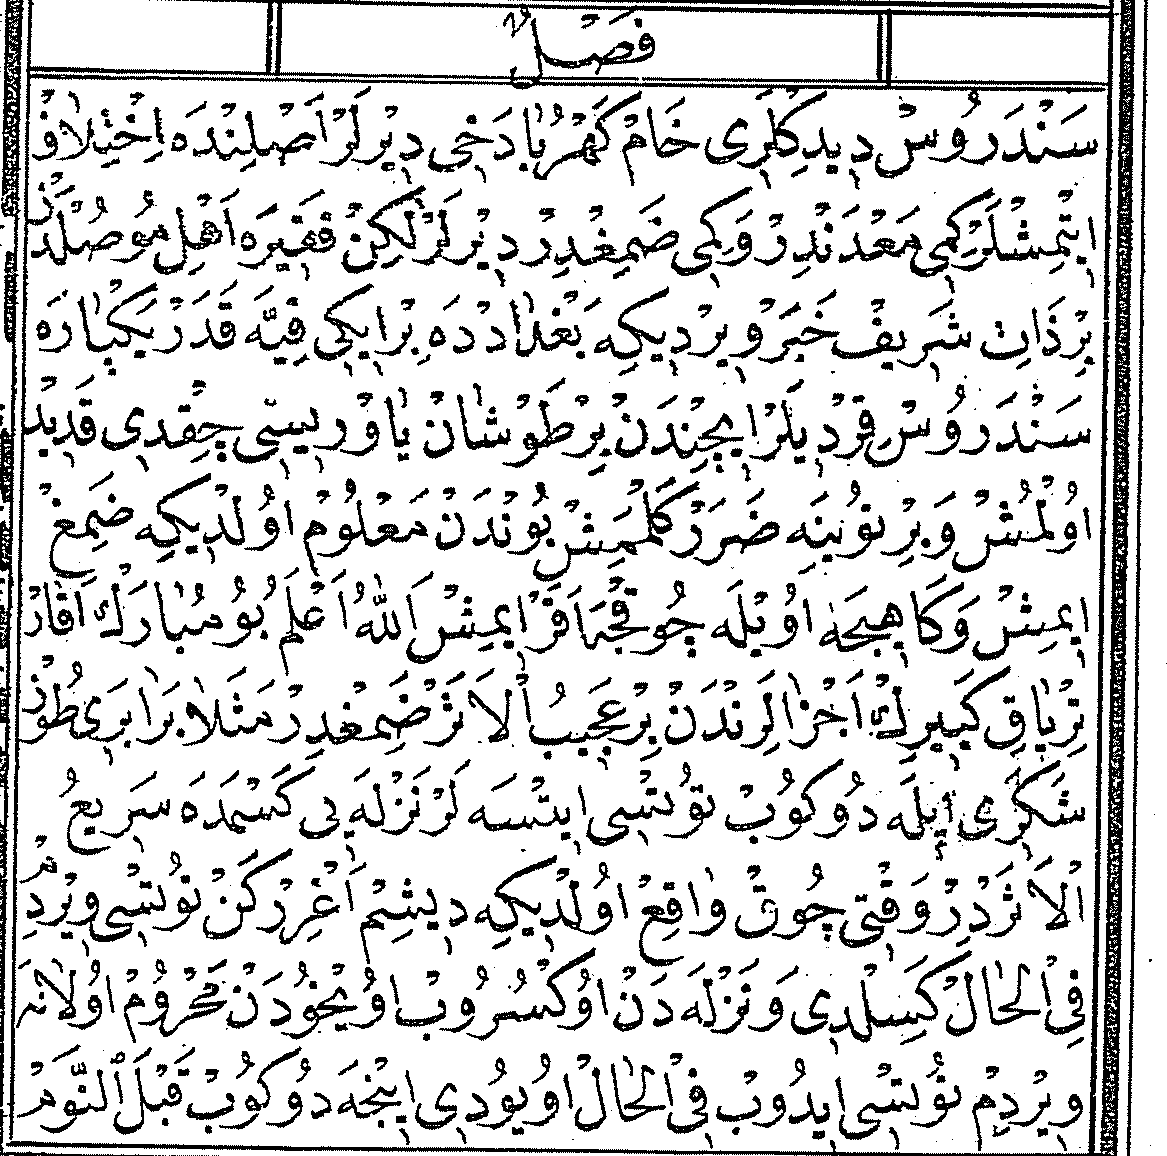 فَصْلٌ
سَنْدَرُوسْ دِيدِكْلَرِى خَامْ كَهْرُبَا دَخِى دِيرْلَرْ اَصْلِنْدَه اِخْتِلَافْ
اِيتْمِشْلَرْ كِمِى مَعْدَنْدِرْ وَكِمِى ضَمِغْدِرْ دِيرْلَرْ لٰكِنْ فَقِيرَه اَهْلِ مُوصُلْدَنْ
بِرْ ذَاتِ شَرِيفْ خَبَرْ وِيرْدِيكِه بَغْدَادْدَه بِرْ اِيكِى قِيَّه قَدَرْ يَكْپَارَه
سَنْدَرُوسْ قِرْدِيلَرْ اِيچِنْدَنْ بِرْ طَوْشَانْ يَاوْرِيسِى چِقْدِى قَدِيدْ
اُولْمُشْ وَبِرْ تُويِنَه ضَرَرْ كَلْمَمِشْ بُونْدَنْ مَعْلُومْ اُولْدِيكِه ضَمِغْ
اِيمِشْ وَكَاهِيجَه اُويْلَه چُوقْجَه اَقَرْ اِيمِشْ اَللّٰهُ اَعْلَمُ بُو مُبَارَكْ اَقَارْ
تِرْيَاقِ كَبِيرِكْ اَجْزَالَرِنْدَنْ بِرْ عَجِيبُ اْلَاثَرْ ضَمِغْدِرْ مَثَلَا بَرَابَرِى طُوزْ
شَكَرِى اِيلَه دُوكُوبْ تُوتْسِى اِيتْسَه لَرْ نَزْلَه يِى كَسْمَدَه سَرِيعُ
اْلَاثَرْدِرْ وَقْتِى چُوقْ وَاقِعْ اُولْدِيكِه دِيشِمْ اَغْرِرْكَنْ تُوتْسِى وِيرْدِمْ
فِى الْحَالْ كَسِلْدِى وَنَزْلَه دَنْ اُوكْسُرُوبْ اُويْخُودَنْ مَحْرُومْ اُولَانَه
وِيرْدِمْ تُوتْسِى اِيدُوبْ فِى الْحَالْ اُويُودِى اِينْجَه دُوكُوبْ قَبْلَ النَّوْمْ